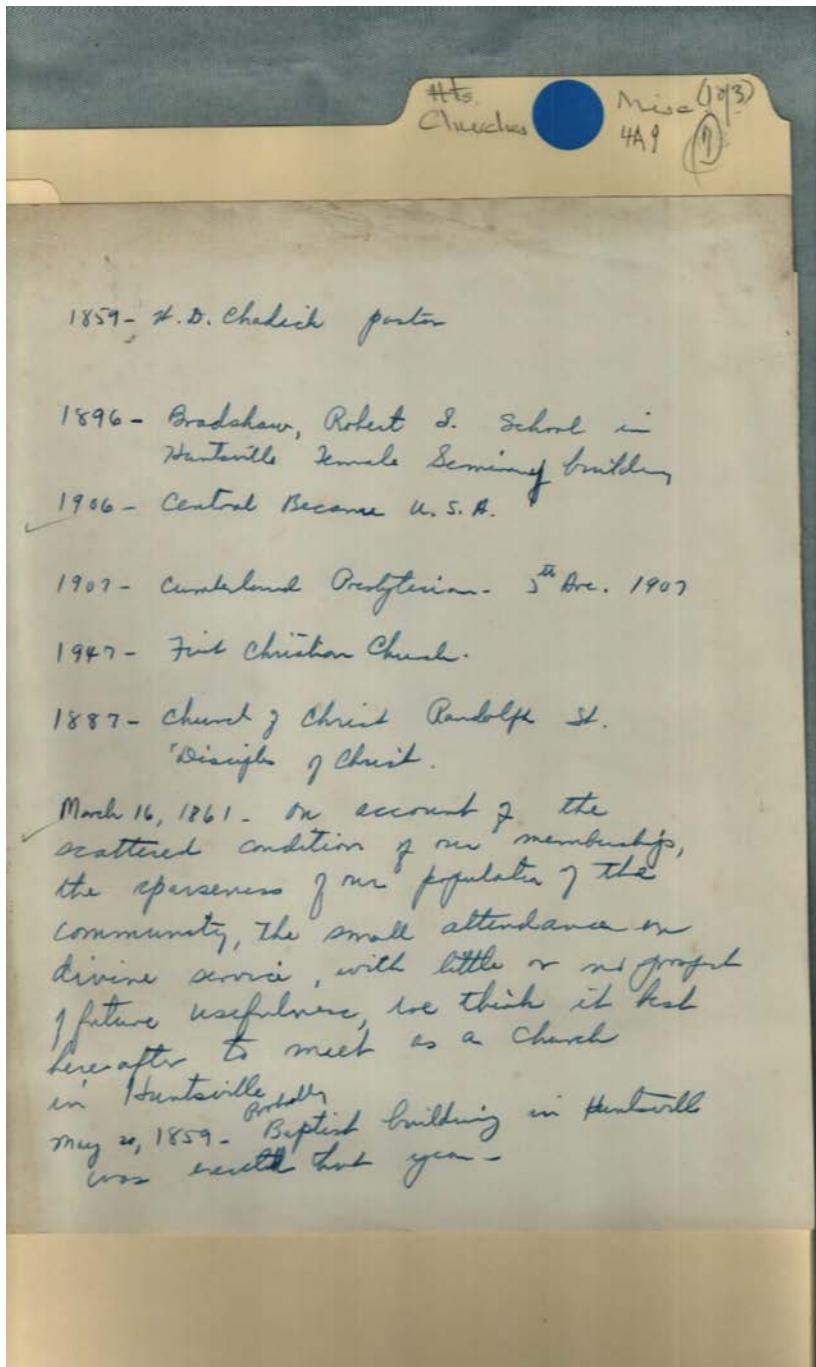 Hts. Misc (1 of 3)
Churches 4A9 (7)
1859- W.D. Chadick pastor
1896- Bradshaw, Robert S. School in
Huntsville Female Seminary building
1906- Central Became U.S.A.
1907- Cumberland Presbyterian- 5th Ave. 1907
1947- First Christian Church.
1887- Church of Christ Randolph St.
"Disciples of Christ.
March 16, 1861- On account of the
scattered condition of our membership,
the sparseness of our population of the
community, the small attendance on
divine service, with little or no prospect
of future usefulness, we think it best
hereafter to meet as a Church
in Huntsville
Probably
May 20, 1859- Baptist building in Huntsville
was erected that year-